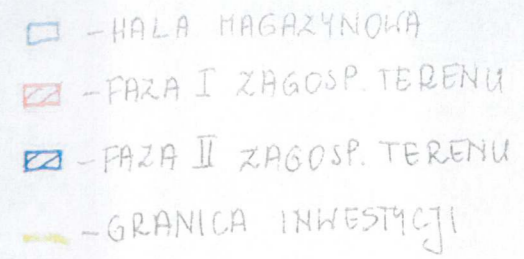 - HALA MAGAZYNOWA
- FAZA I ZAGOSP. TERENU
- FAZA II ZAGOSP. TERENU
- GRANICA INWESTYCJI